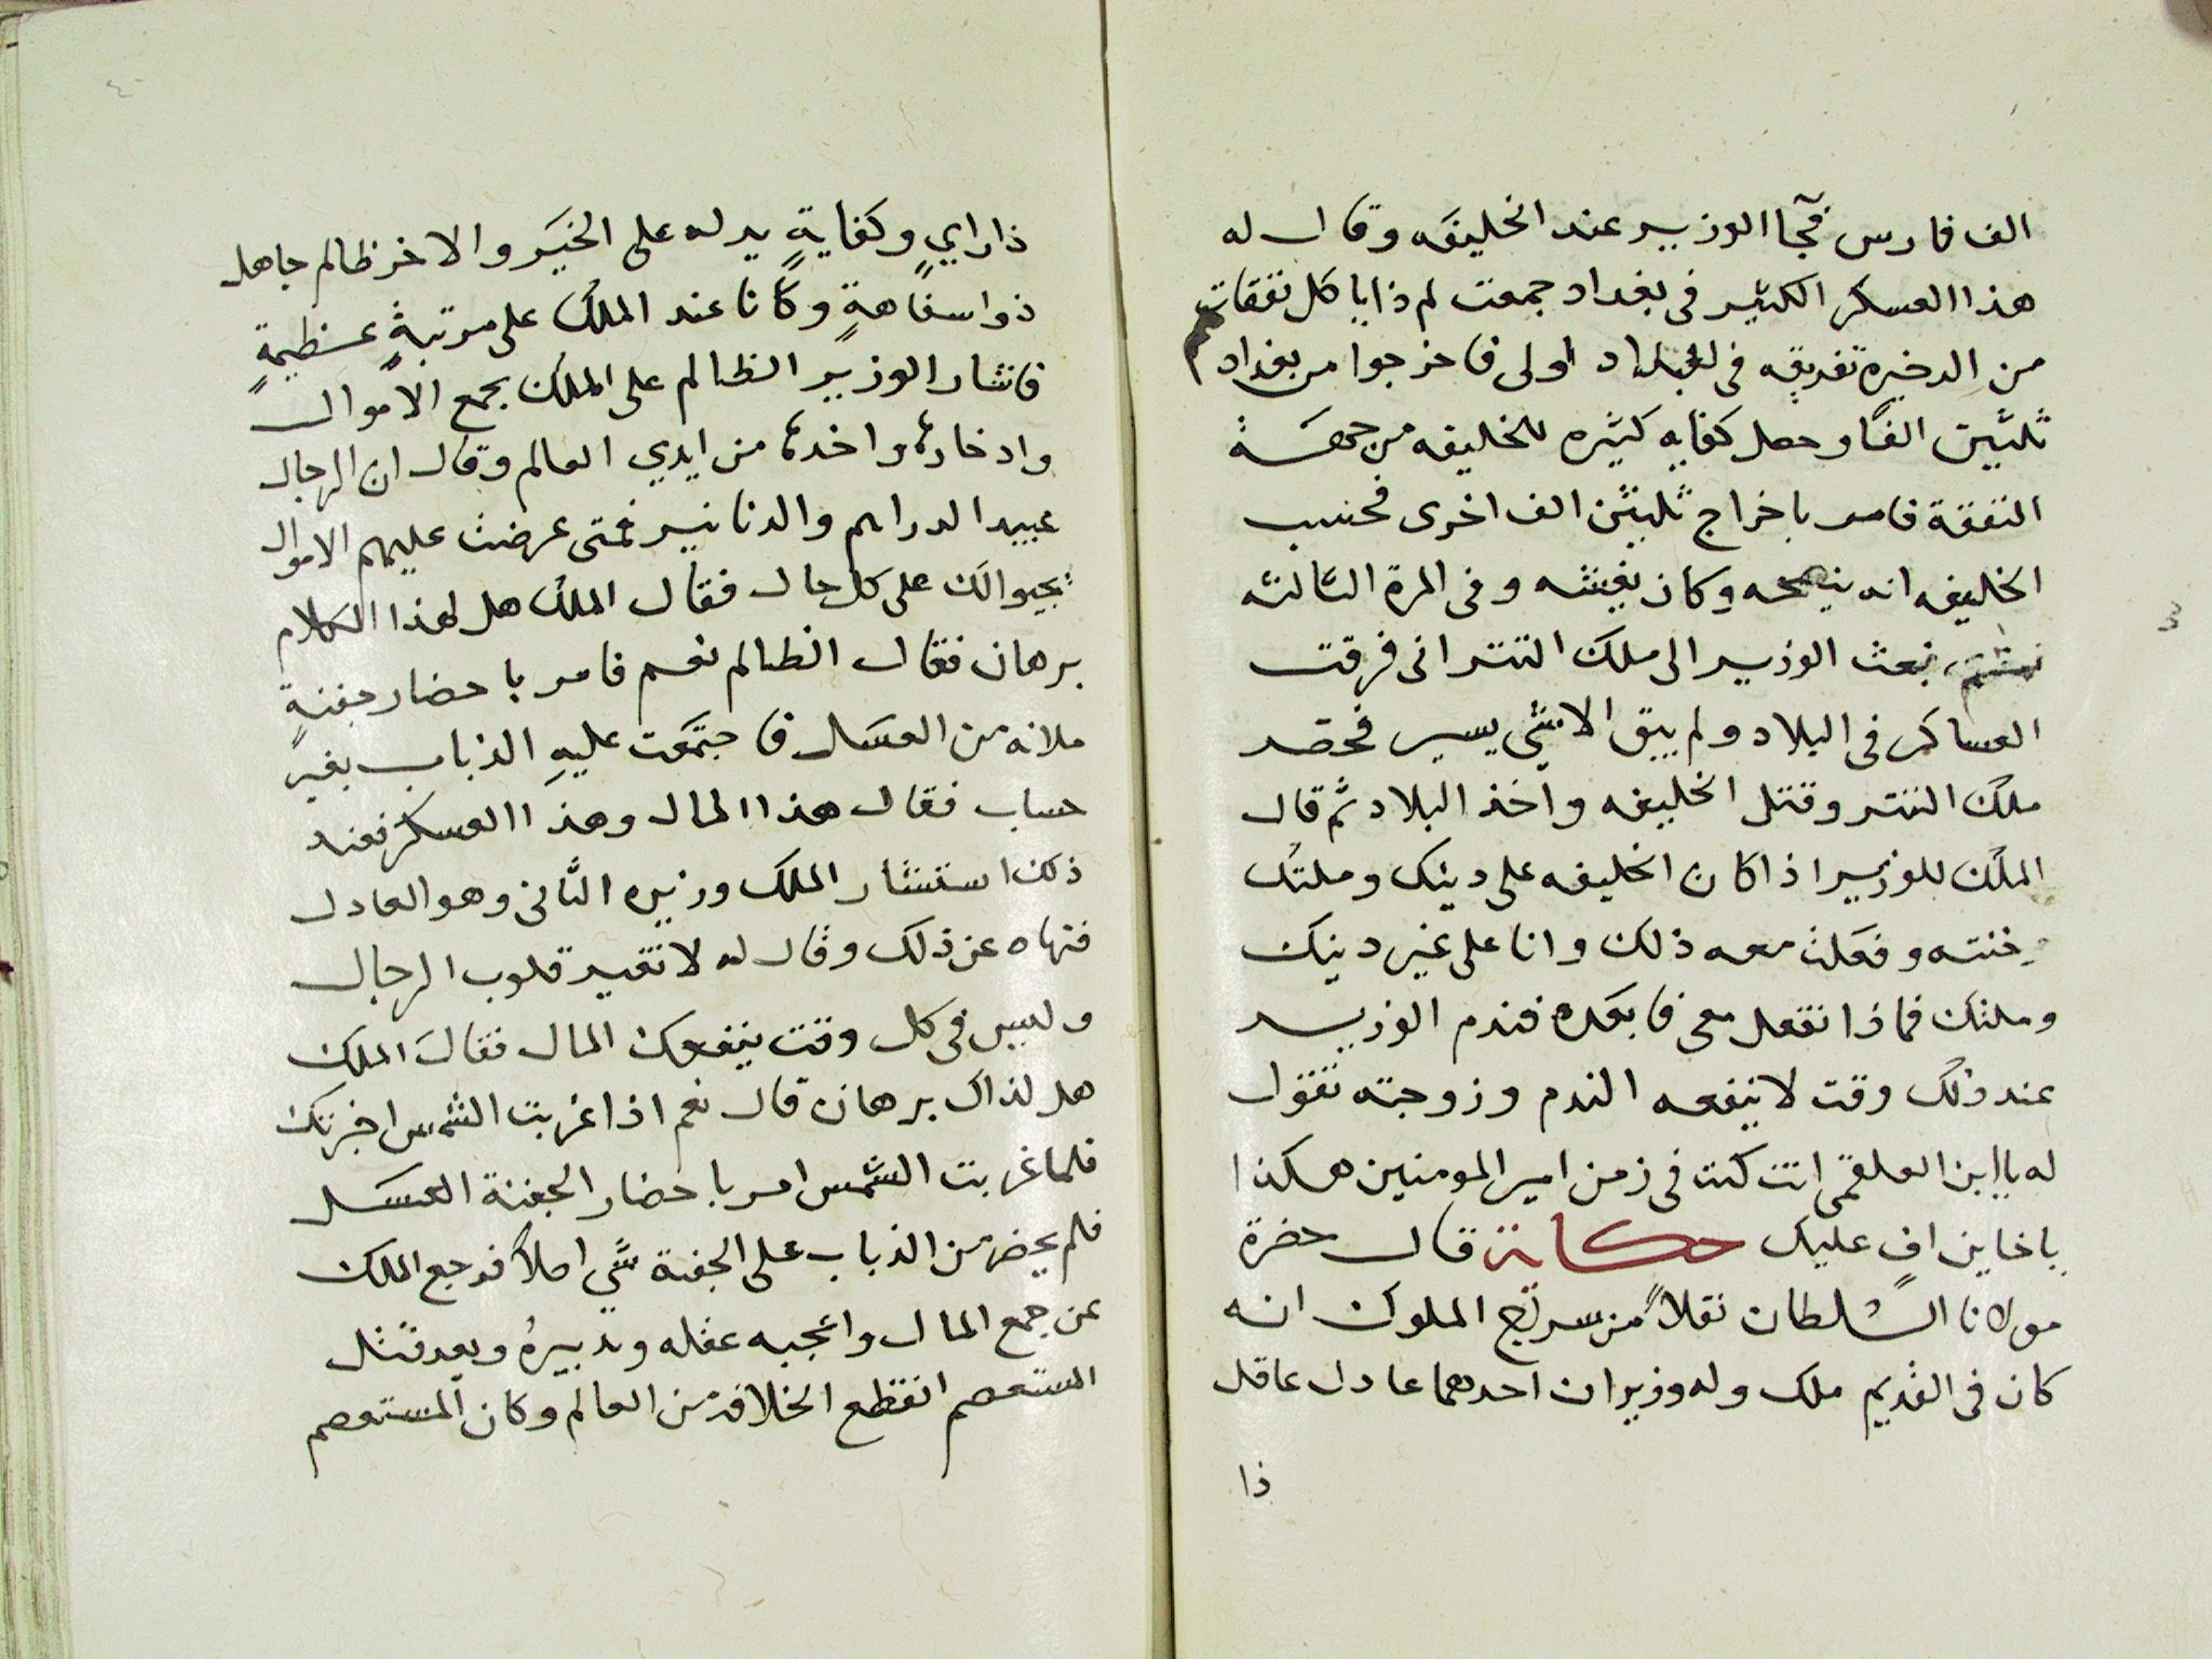 الف فارس فجا الوزير عند الخليفه وقال له
هذا العسكر الكثير فى بغداد جمعت لم ذا يا كل نفقات
من الدخيره تفريقه فى البلاد اولى فاخرجوا من بغداد
ثلثين الفا وحصل كفايه كثيره للخليفه من جهة
النفقة فامر باخراج ثلثين الف اخرى فحسب
الخليفه انه ينصحه وكان يغشه وفى المرة الثالثه
بعث الوزير الى ملك التتر انى فرقت
العساكر فى البلاد ولم يبق الا شي يسير فحصد
ملك التتر وقتل الخليفه واخذ البلاد ثم قال
الملك للوزير اذا كان الخليفه على دينك وملتك
خنته وفعلت معه ذلك وانا على غير دينك
وملتك فماذا تفعل معى فابعده فندم الوزير
عند ذلك وقت لا ينفعه الندم وزوجته تقول
له يا ابن العلقمى انت كنت فى زمن امير المومنين هكذا
يا خاين اف عليك حكاية قال حضرة
مولانا السلطان نقلا من سرج الملوك انه
كان فى القديم ملك وله وزيران احدهما عادل عاقل
ذا
ذا رايٍ وكفايةٍ يدله على الخير والاخر ظالم جاهل
ذوا سفاهةٍ وكانا عند الملك على مرتبةٍ عظيمةٍ
فاشار الوزير الظالم على الملك بجمع الاموال
وادخارها واخدها من ايدي العالم وقال ان الرجال
عبيد الدراهم والدنانير فمتى عرضت عليهم الاموال
يجيوا لك على كل حال فقال الملك هل لهذا الكلام
برهان فقال الظالم نعم فامر باحضار جفنةٍ
ملانه من العسل فاجتمعت عليه الذباب بغير
حساب فقال هذا المال وهذا العسكر فعند
ذلك استشار الملك وزيره الثانى وهو العادل
فنهاه عن ذلك وقال له لا تغير قلوب الرجال
وليس فى كل وقت ينفعك المال فقال الملك
هل لذاك برهان قال نعم اذا غربت الشمس اخبرتك
فلما غربت الشمس امر باحضار الجفنة العسل
فلم يحضر من الذباب على الجفنة شي اصلا فرجع الملك
عن جمع المال واعجبه عقله وتدبيره وبعد قتل
المستعصم انقطع الخلافة من العالم وكان المستعصم